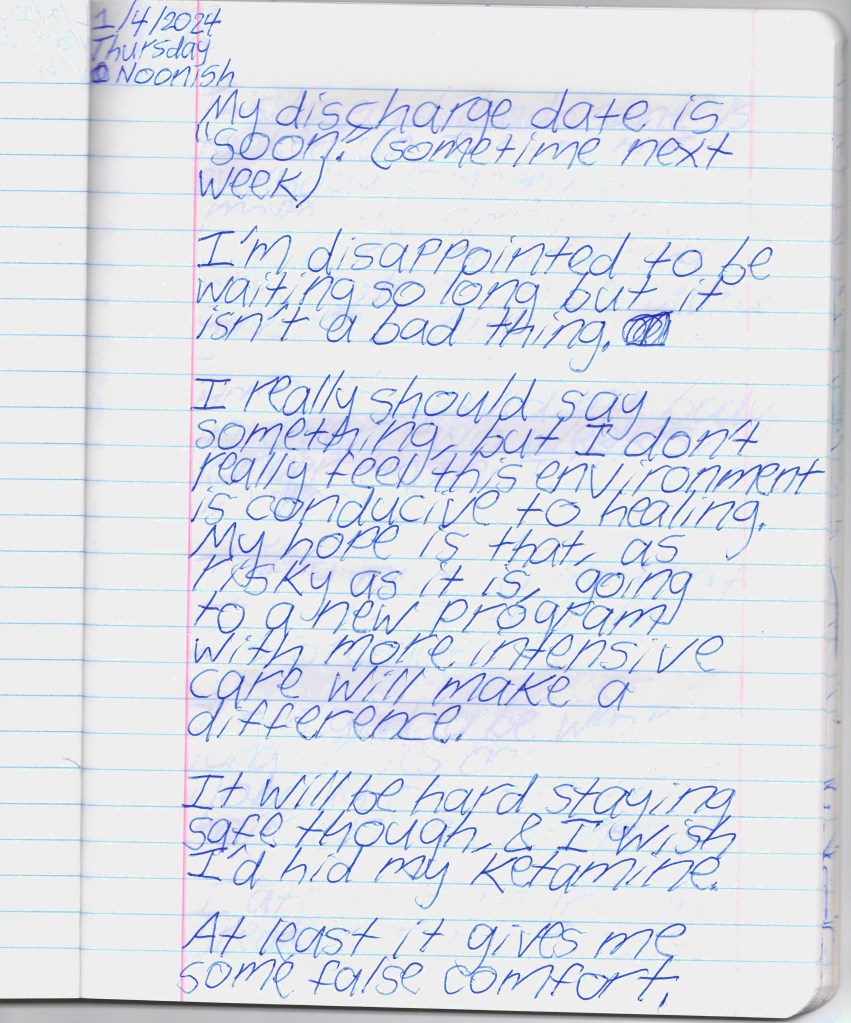 1/4/2024
Thursday
Noonish
My discharge date is
"soon." (sometime next
week)
I'm disappointed to be
waiting so long but it
isn't a bad thing.
I really should say
something, but I don't
really feel this environment
is conducive to healing.
My hope is that, as
risky as it is, going
to a new program
with more intensive
care will make a
difference.
It will be hard staying
safe though, & I wish
I'd hid my ketamine.
At least it gives me
some false comfort.